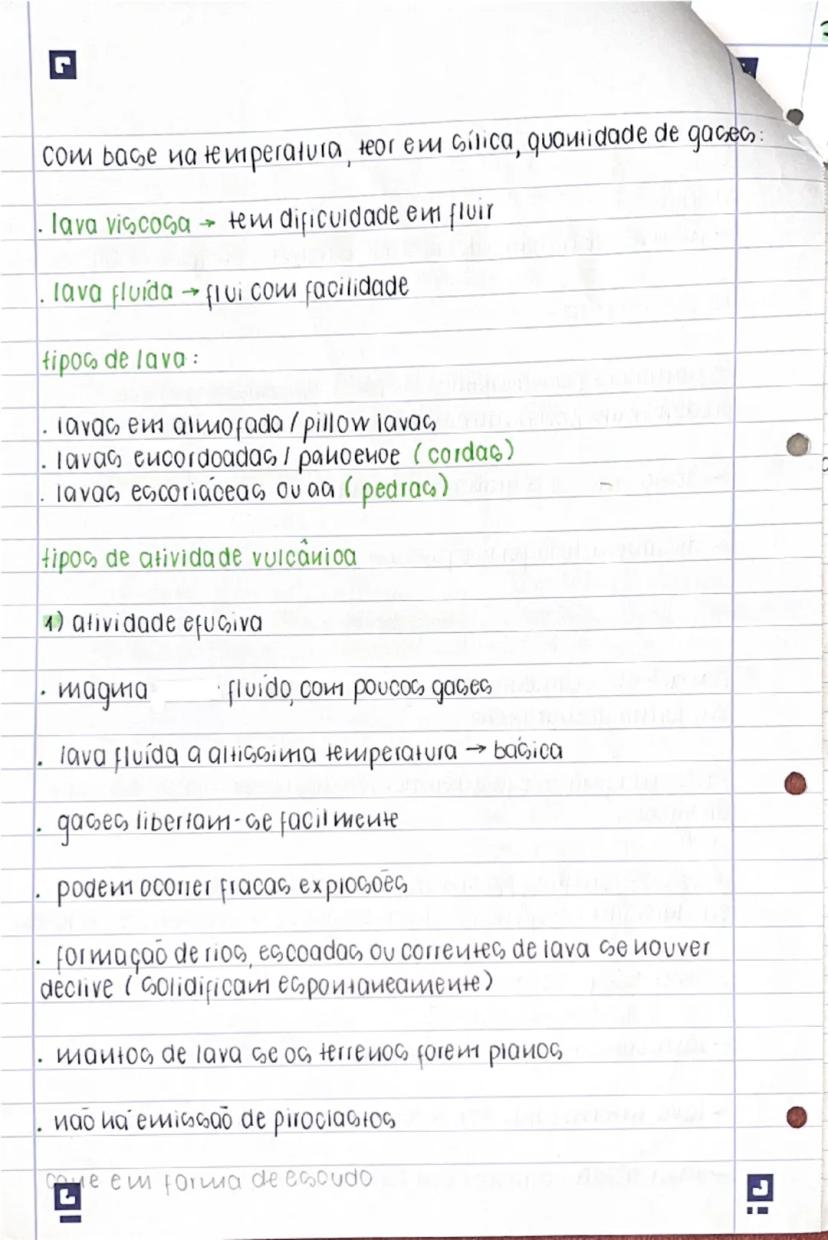 com base na temperatura, teor em sílica, quantidade de gases:
. lava viscosa → tem dificuldade em fluir
. lava fluída → flui com facilidade
tipos de lava:
. lavas em almofada / pillow lavas
. lavas encordoadas / pahoehoe (cordas)
. lavas escoriáceas ou aa (pedras)
tipos de atividade vulcânica
1) atividade efusiva
. magma fluido, com poucos gases
. lava fluída a altissima temperatura → básica
. gases libertam-se facilmente
. podem ocorrer fracas explosões
. formação de rios, escoadas ou correntes de lava se houver
declive (solidificam espontaneamente)
. mantos de lava se os terrenos forem planos
. não há emissão de piroclastos
cone em forma de escudo